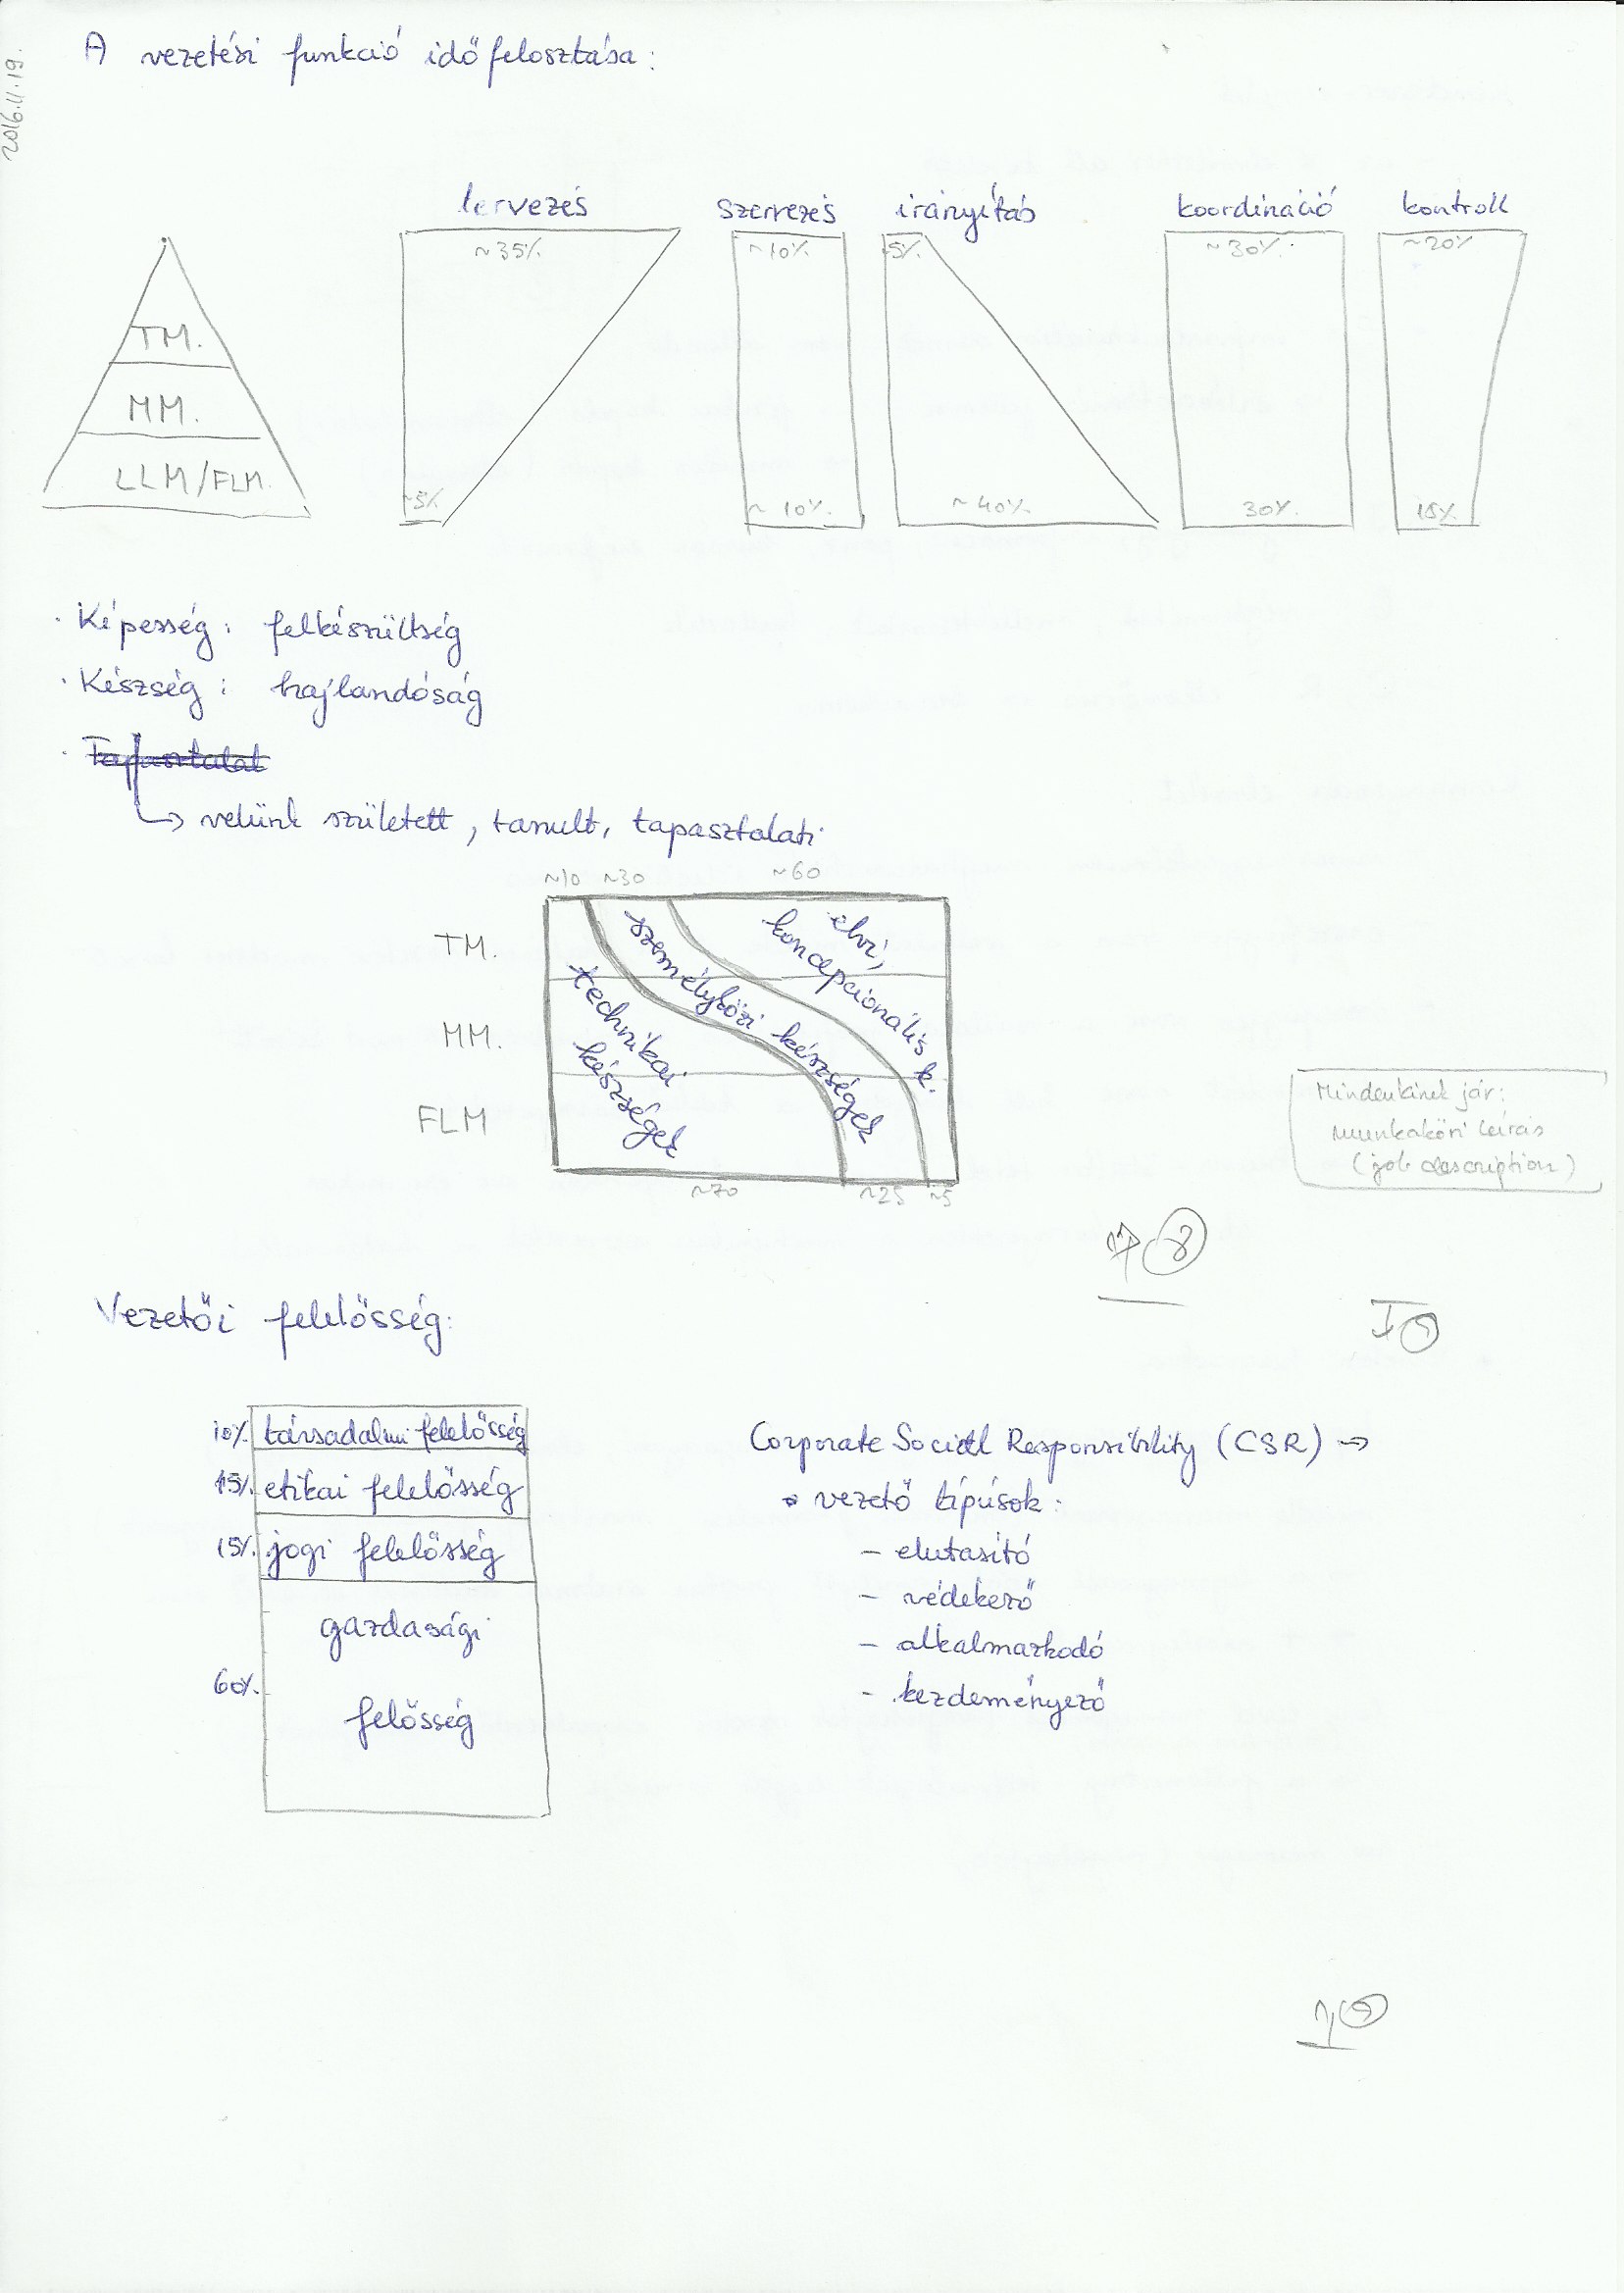 2016.11.19.
A vezetési funkció idő felosztása:
tervezés szervezés irányítás koordináció kontroll
~35% ~10% 5% ~30% ~20%
TM.
MM.
LLM/FLM.
~5% ~10% ~40% 30% 15%
· Képesség: felkészültség
· Készség: hajlandóság
· Tapasztalat
↳ velünk született, tanult, tapasztalati
~10 ~30 ~60
TM.
MM.
FLM
technikai készségek
személyközi készségek
elvi, koncepcionális k.
~70 ~25 ~5
Mindenkinek jár:
munkaköri leírás
(job description)
Vezetői felelősség:
10% társadalmi felelősség
15% etikai felelősség
15% jogi felelősség
60% gazdasági
felősség
Corporate Social Responsibility (CSR) →
vezető típúsok:
- elutasító
- védekező
- alkalmazkodó
- kezdeményező